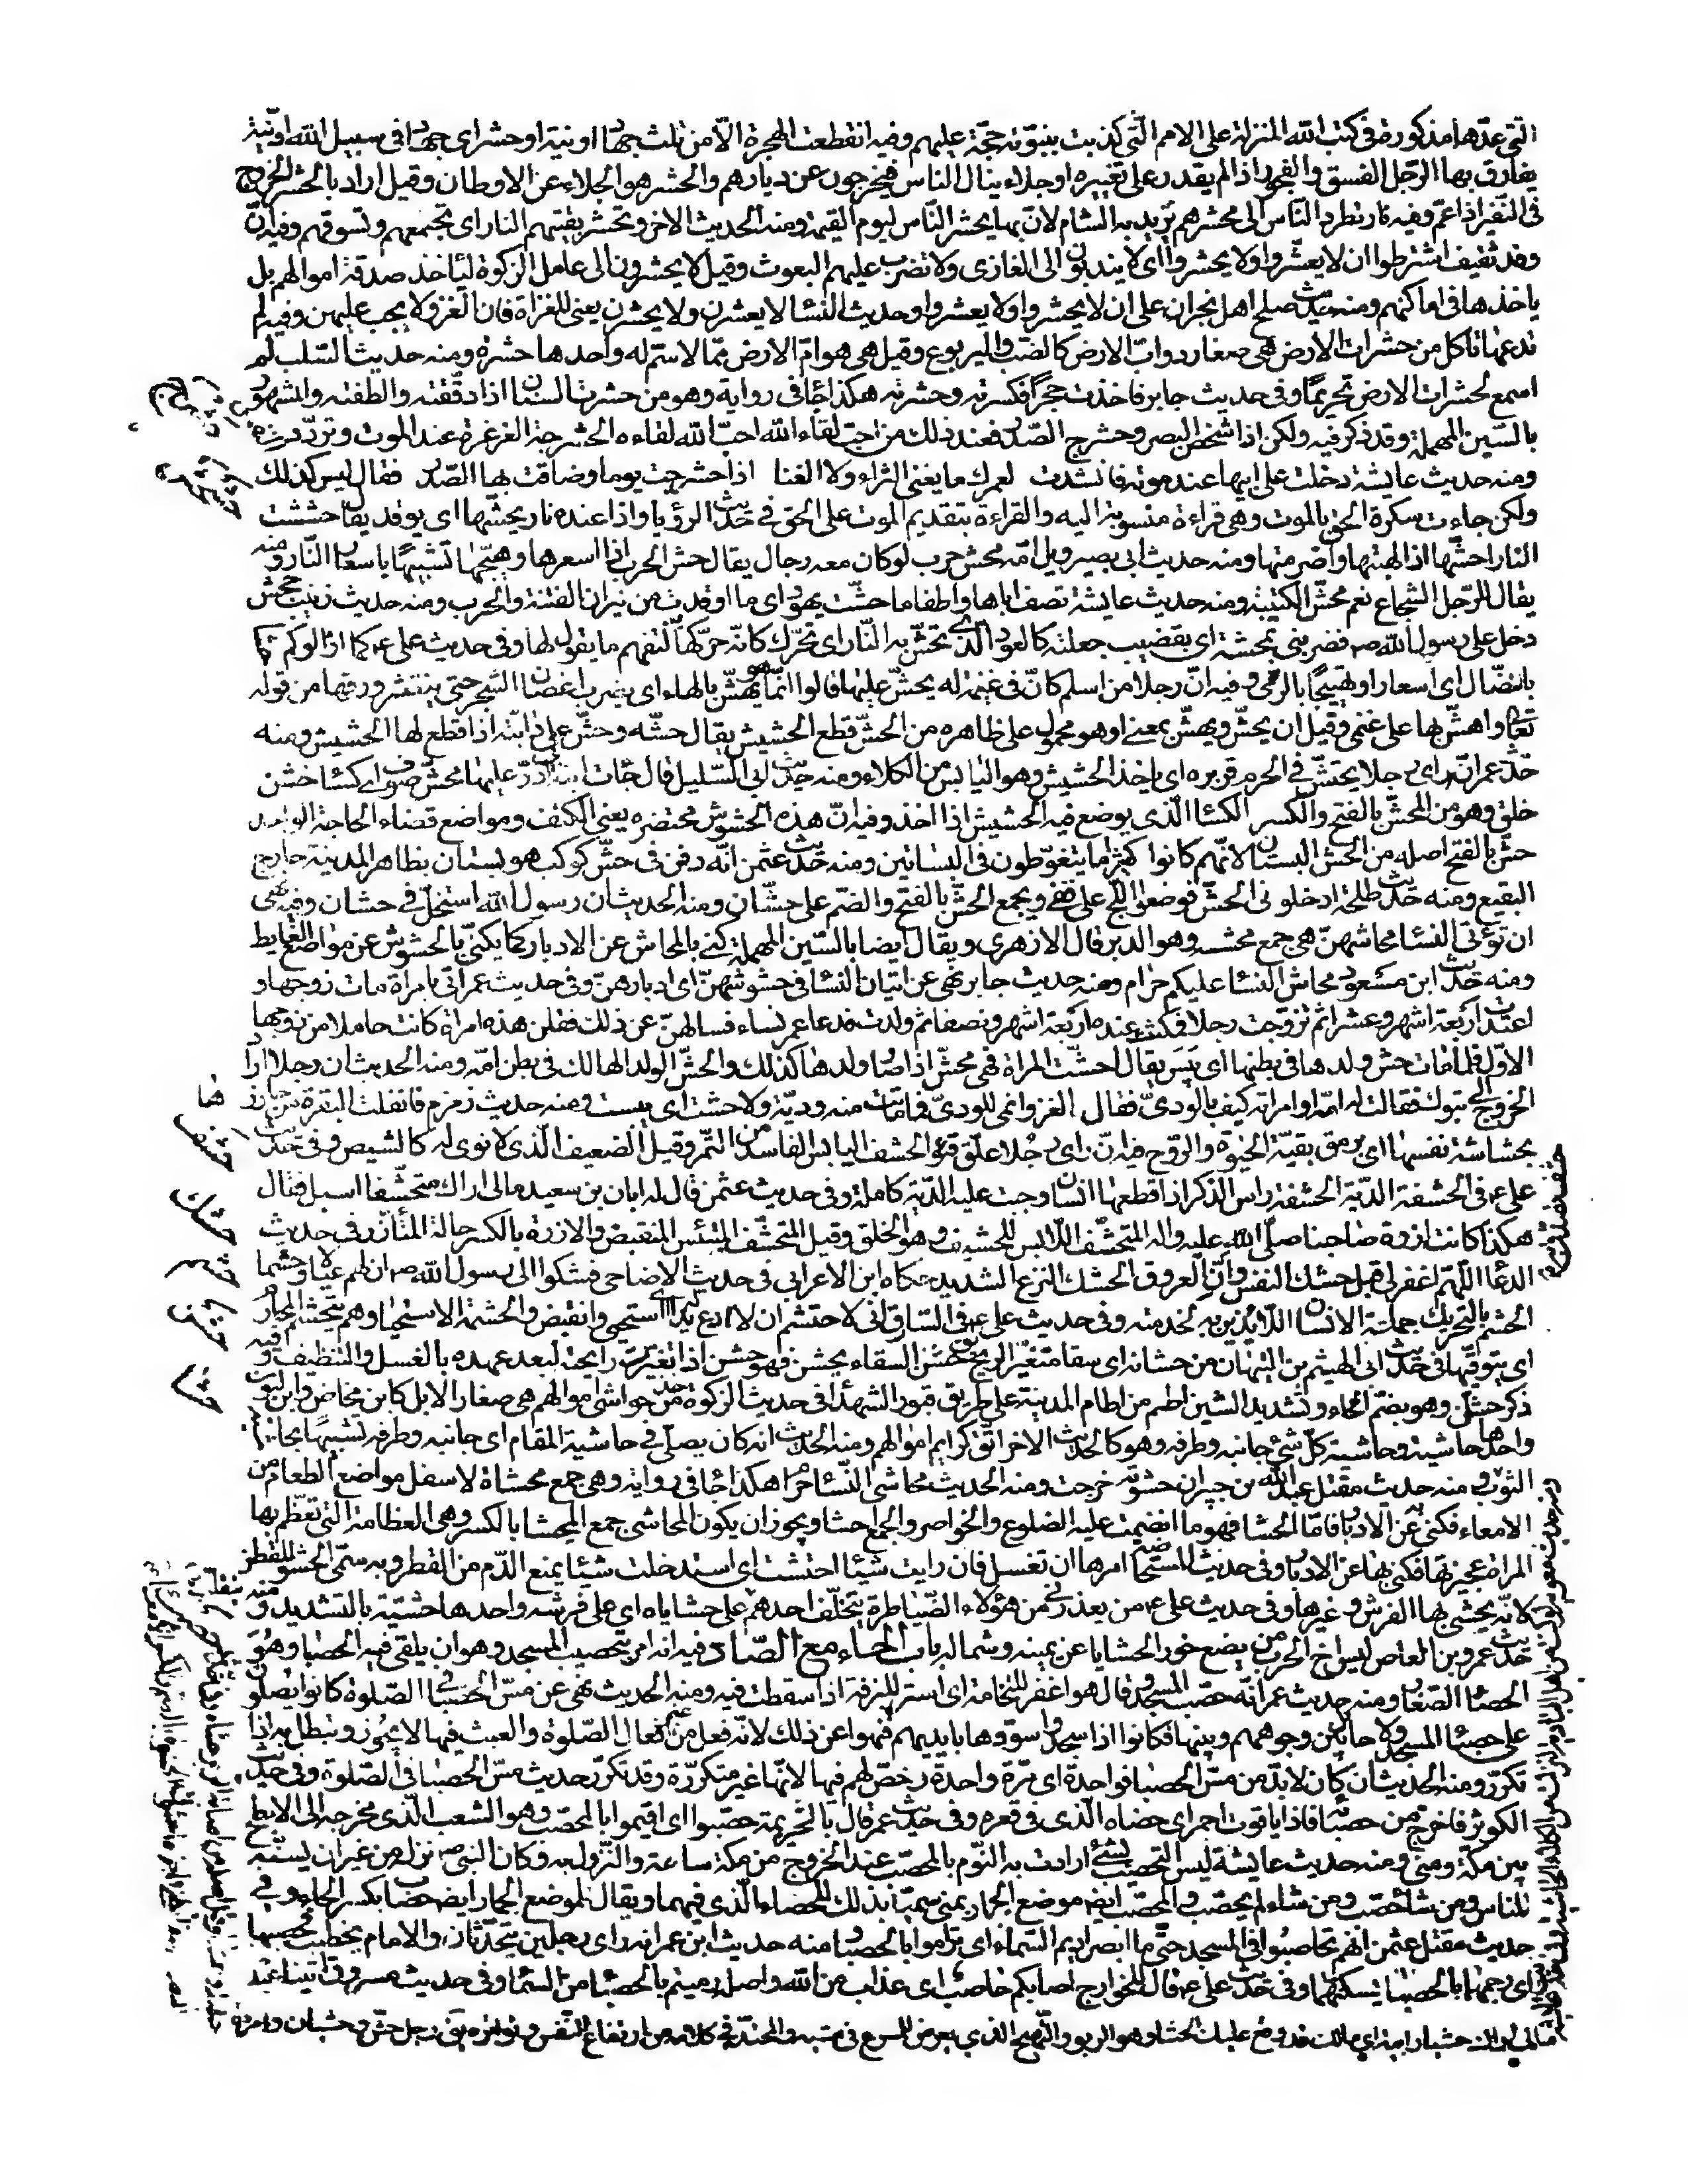 التى عدّها مذكورة فى كتب الله المنزلة على الامم التى كذبت بنبوّته حجّة عليهم وفيه انقطعت الهجرة الّا من ثلث جهاد او نية او حشر اى جهاد فى سبيل الله او نية
يفارق بها الرّجل الفسق والفجور اذا لم يقدر على تغييره او جلاء ينال الناس فيخرجون عن ديارهم والحشر هو الجلاء عن الاوطان وقيل اراد بالحشر الخروج
فى النّفير اذا عمّ وفيه نار تطرد النّاس الى محشرهم يريد به الشام لانّ بها يحشر النّاس ليوم القيمة ومنه الحديث الاخر وتحشر بقيّتهم النار اى تجمعهم وتسوقهم وفيه انّ
وفد ثقيف اشترطوا ان لا يعشّروا ولا يحشروا اى لا يندبون الى المغازى ولا تضرب عليهم البعوث وقيل لا يحشرون الى عامل الزكوة ليأخذ صدقة اموالهم بل
ياخذها فى اماكنهم ومنه حديث صلح اهل نجران على ان لا يحشروا ولا يعشروا وحديث النسا لا يعشرن ولا يحشرن يعنى للغزاة فان الغزو لا يجب عليهن وفيه لم
تدعها تاكل من حشرات الارض هى صغار دوابّ الارض كالضبّ واليربوع وقيل هى هوامّ الارض ممّا لا سمّ له واحدها حشرة ومنه حديث التلب لم
اسمع لحشرات الارض تحريمًا وفى حديث جابر فاخذت حجرًا فكسرته وحشرته هكذا جا فى رواية وهو من حشرت السنان اذا دقّقته والطفته والمشهور
بالسّين المهملة وقد ذكر فيه ولكن اذا شخص البصر وحشرج الصّدر فعند ذلك من احبّ لقاء الله احبّ الله لقاءه الحشرجة الغرغرة عند الموت وتردّد
ومنه حديث عايشة دخلت على ابيها عند موته فانشدت لعمرك ما يغنى الثراء ولا الغنا اذا حشرجت يوما وضاقت بها الصّدر فقال ليس كذلك
ولكن جاءت سكرة الحقّ بالموت وهى قراءة منسوبة اليه والقراءة بتقديم الموت على الحقّ فى حديث الرؤيا واذا عنده نار يحشّها اى يوقد يقال حششت
النار احشّها اذا الهبتها واضرمتها ومنه حديث ابى بصير ويل امّه محش حرب لو كان معه رجال يقال حش الحرب اذا اسعرها وهيّجها تشبيهًا باسعار النّار ومنه
يقال للرّجل الشجاع نعم محشّ الكتيبة ومنه حديث عايشة تصف اباها واطفا ما حشّت يهود اى ما اوقدت من نيران الفتنة والحرب ومنه حديث زينب بنت جحش
دخل على رسول الله ص فضربنى بمحشة اى بقضيب جعلته كالعود الّذى تحشّ به النّار اى تحرّك كانّه حرّكها لتفهم ما يقول لها وفى حديث على ع كما ازالوكم حشا
بالنضال اى اسعارا وتهييجًا بالرّمى وفيه انّ رجلا من اسلم كان فى غنيمة له يحشّ عليها قالوا انّما هو يهشّ بالهاء اى يضرب اغصان الشجر حتى ينتثر ورقها من قوله
تعا واهشّ بها على غنمى وقيل ان يحشّ ويهشّ بمعنى او هو محمول على ظاهره من الحشّ قطع الحشيش يقال حشّه وحشّ على دابّته اذا قطع لها الحشيش ومنه
حديث عمر انّه راى رجلا يحتشّ فى الحرم فزبره اى ياخذ الحشيش وهو اليابس من الكلاء ومنه حديث ابى السّليل قال جاءت ابنة ابى ذرّ عليها محشّ صوف اى كسا خشن
خلق وهو من المحشّ بالفتح والكسر الكسا الّذى يوضع فيه الحشيش اذا اخذ وفيه انّ هذه الحشوش محتضره يعنى الكنف ومواضع قضاء الحاجة الواحد
حشّ بالفتح اصله من الحشّ البستان لانّهم كانوا كثيرا ما يتغوّطون فى البساتين ومنه حديث عثمن انّه دفن فى حشّ كوكب هو بستان بظاهر المدينة خارج
البقيع ومنه حديث طلحة ادخلونى الحشّ فوضعوا اللجّ على قفى ويجمع الحشّ بالفتح والضم على حشّان ومنه الحديث ان رسول الله استخلى فى حشان وفيه نهى
ان تؤتى النسا فى محاشهنّ هى جمع محشه وهو الدبر قال الازهرى ويقال ايضا بالسّين المهملة كنى بالمحاش عن الادبار كما يكنى بالحشوش عن مواضع الغايط
ومنه حديث ابن مسعود محاش النسا عليكم حرام ومنه حديث جابر نهى عن اتيان النسا فى حشوشهنّ اى ادبارهنّ وفى حديث عمر اتى بامراة مات زوجها و
اعتدّت اربعة اشهر وعشرا ثم تزوّجت رجلا فمكثت عنده اربعة اشهر ونصفا ثم ولدت فدعا عمر نساء فسالهنّ عن ذلك فقلن هذه امراة كانت حاملا من زوجها
الاوّل فلمّا مات حش ولدها فى بطنها اى يبس يقال احشّت المراة فهى محشّ اذا صار ولدها كذلك والحشّ الولد الهالك فى بطن امّه ومنه الحديث ان رجلا اراد
الخروج الى تبوك فقالت له امّه او امراته كيف بالودىّ فقال الغزو انمى للودىّ فما ماتت منه وديّة ولا حشت اى يبست ومنه حديث زمزم فانفلتت البقرة من جازرها
بحشاشة نفسها اى برمق بقيّة الحيوة والرّوح فيه انّه راى رجلا علّق قنو الحشف اليابس الفاسد من التّمر وقيل الضعيف الّذى لا نوى له كالشيص وفى حديث
على ع فى الحشفة الديّة الحشفة راس الذكر اذا قطعها انسان وجبت عليه الدّية كاملة وفى حديث عثمن قال له ابان بن سعيد مالى اراك متحشّفا اسبل فقال
هكذا كانت ازرة صاحبنا صلّى الله عليه واله المتحشّف اللّابس للحشيف وهو الخلق وقيل المتحشّف المبتئس المتقبض والازرة بالكسر حالة المتأزّر فى حديث
الدعا اللّهمّ اغفر لى قبل حشك النفس وانّ العروق الحشك النزع الشديد حكاه ابن الاعرابى فى حديث الاضاحى فشكوا الى رسول الله ص ان لهم عيالا وحشما
الحشم بالتحريك جماعة الانسان اللّايذين به لخدمته وفى حديث على ع فى السّارق انّى لاحتشم ان لا ادع له يدا اى استحيى وانقبض والحشمة الاستحيا وهو يتحشّم المحارم
اى يتوقّيها فى حديث ابى الهيثم بن التيهان من حشانه اى سقا متغيّر الريح يقال حشن السقاء يحشن فهو حشن اذا تغيّرت رايحته لبعد عهده بالغسل والتنظيف وفيه
ذكر حشان وهو بضمّ الحاء وتشديد الشين اطم من اطام المدينة على طريق قبور الشهدا فى حديث الزكوة خذ من حواشى اموالهم هى صغار الابل كابن مخاض وابن لبون
واحدها حاشية وحاشية كلّ شئ جانبه وطرفه وهو كالحديث الاخر اتّق كرايم اموالهم ومنه الحديث انه كان يصلّى فى حاشية المقام اى جانبه وطرفه تشبيهًا بحاشية
الثوب ومنه حديث مقتل عبد الله بن جبير ان حشوته خرجت ومنه الحديث محاشى النّسا حرام هكذا جا فى رواية وهى جمع محشاة لاسفل مواضع الطعام من
الامعاء فكنى به عن الادبار فامّا الحشا فهو ما انضمت عليه الضلوع والخواصر والجمع احشا ويجوز ان يكون المحاشى جمع المحشا بالكسر وهى العظامة التى تعظّم بها
المراة عجيزتها فكنى بها عن الادبار وفى حديث المستحاضة امرها ان تغتسل فان رات شيئا احتشت اى استدخلت شيئا يمنع الدّم من القطر وبه سمّى الحشو للقطن
لانّه يحشى بها الفرش وغيرها وفى حديث على ع من يعذرنى من هؤلاء الضّياطرة يتخلّف احدهم على حشاياه اى على فرشه واحدها حشيّة بالتشديد ومنه
حديث عمرو بن العاص ليس اخ الحرب من يضع خور الحشايا عن يمينه وشماله باب الحاء مع الصّاد فيه انه امر بتحصيب المسجد وهو ان يلقى فيه الحصبا وهو
الحصا الصّغار ومنه حديث عمر انّه حصّب المسجد وقال هو اغفر للنخامة اى استر للبزقة اذا سقطت فيه ومنه الحديث نهى عن مسّ الحصبا فى الصّلوة كانوا يصلّون
على حصبا المسجد ولا حايل بين وجوههم وبينها فكانوا اذا سجدوا سوّوها بايديهم فنهوا عن ذلك لانّه فعل من غير افعال الصّلوة والعبث فيها لا يجوز وتبطل به اذا
تكرّر ومنه الحديث ان كان لابدّ من مسّ الحصبا فواحدة اى مرّة واحدة رخّص لهم فيها لانّها غير متكرّرة وقد تكرّر حديث مسّ الحصبا فى الصّلوة وفى حديث
الكوثر فاخرج من حصبائه فاذا ياقوت احمر اى حصاه الّذى فى قعره وفى حديث عمر قال يا لخزيمة حصّبوا اى اقيموا بالمحصّب وهو الشعب الّذى مخرجه الى الابطح
بين مكّة ومنى ومنه حديث عايشة ليس التحصيب بشئ ارادت به النّوم بالمحصّب عند الخروج من مكّة ساعة والنّزول به وكان النبى ص نزله من غير ان يسنّه
للناس فمن شا حصّب ومن شاء لم يحصّب والمحصّب ايضا موضع الجمار بمنى سميّا بذلك للحصاء الّذى فيهما ويقال لموضع الجمار ايضا حصاب بكسر الحاء وفى
حديث مقتل عثمن انّهم تحاصبوا فى المسجد حتّى ما ابصر اديم السّماء اى تراموا بالحصبا ومنه حديث ابن عمر انه راى رجلين يتحدّثان والامام يخطب فحصبهما
اى رجمهما بالحصبا يسكتهما وفى حديث على ع قال للخوارج اصابكم حاصب اى عذاب من الله واصله رميتم بالحصبا من السّما وفى حديث مسروق اتينا عبد
حشرج
حشف
حشك
حشم
حشن
حشا